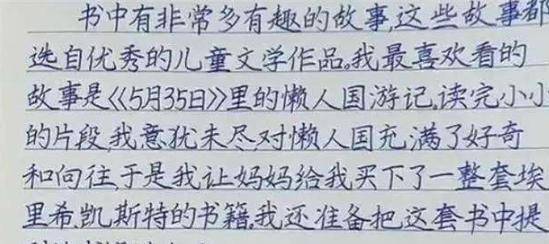 书中有非常多有趣的故事,这些故事都
选自优秀的儿童文学作品。我最喜欢看的
故事是《5月35日》里的懒人国游记,读完小小
的片段,我意犹未尽对懒人国充满了好奇
和向往,于是我让妈妈给我买下了一整套埃
里希.凯斯特的书籍,我还准备把这套书中提